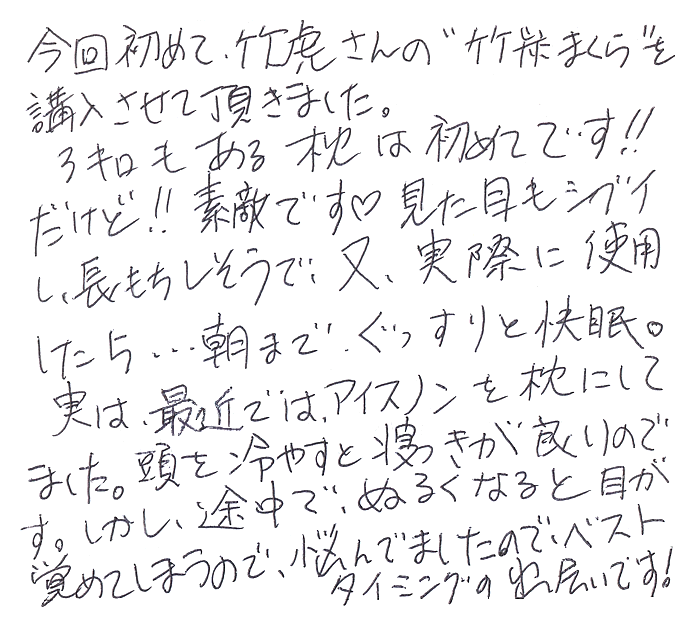 今回初めて、竹虎さんの"竹炭まくら"を
講入させて頂きました。
3キロもある枕は初めてです!!
だけど!!素敵です♡見た目もシブイ
し、長もちしそうで、又、実際に使用
したら…朝まで、ぐっすりと快眠。
実は、最近では、アイスノンを枕にして
ました。頭を冷やすと寝つきが良いので
す。しかし、途中で、ぬるくなると目が
覚めてしまうので、悩んでましたので、ベスト
タイミングの出会いです!